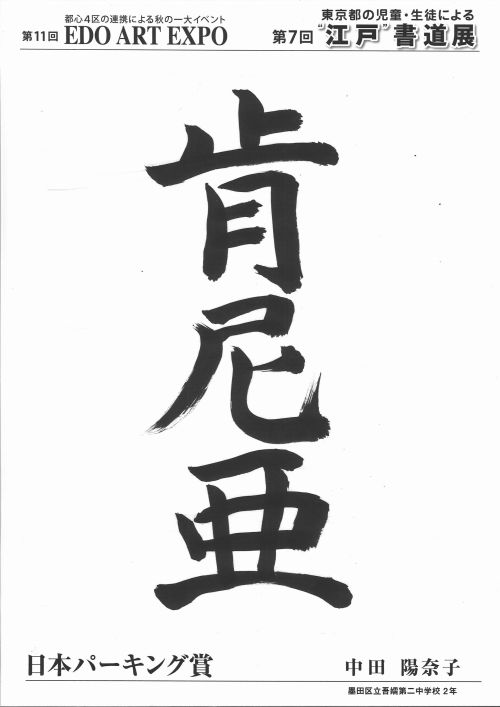 都心4区の連携による秋の一大イベント
第11回 EDO ART EXPO
東京都の児童・生徒による
第7回 "江戸"書道展
肯
尼
亜
日本パーキング賞
中田 陽奈子
墨田区立吾嬬第二中学校 2年